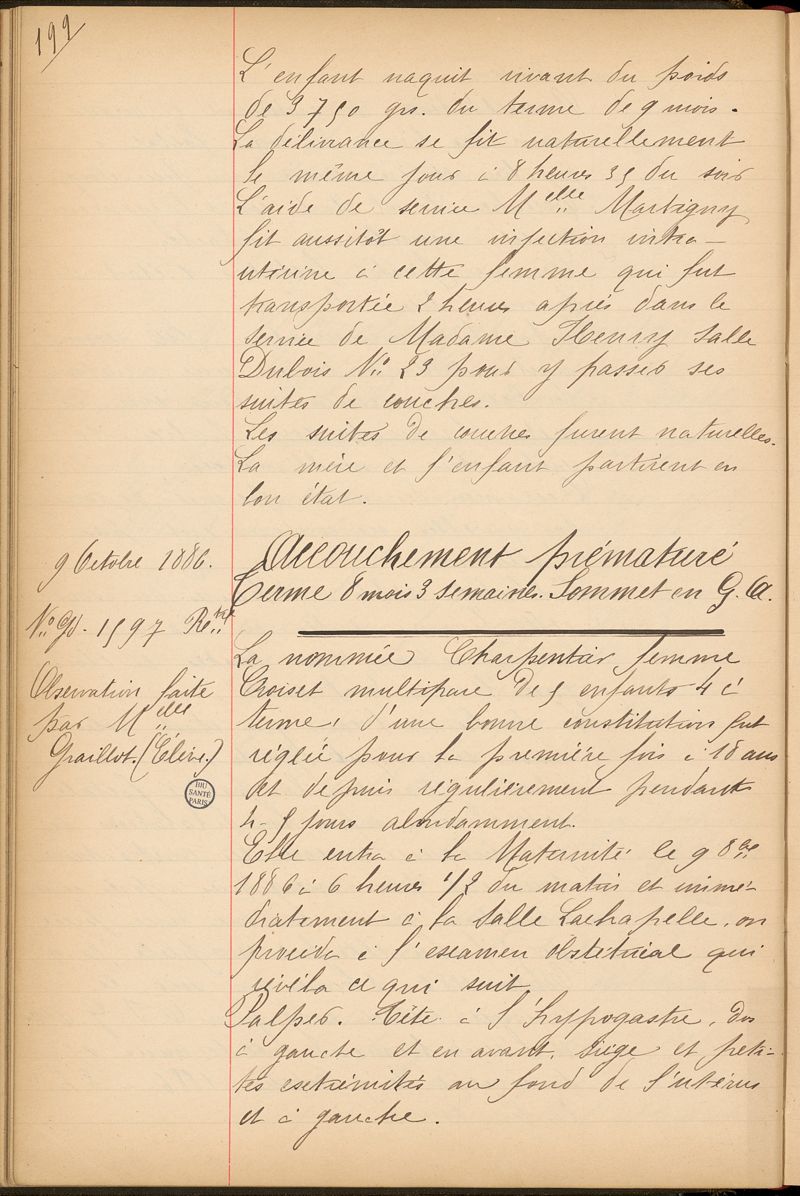 199
L'enfant naquit vivant du poids
de 3750 grs. du terme de 9 mois.
La délivrance se fit naturellement
le même jour à 8 heures 35 du soir
L'aide de service Melle Martigny
fit aussitôt une injection intra-
utérine à cette femme qui fut
transportée 2 heures après dans le
service de Madame Henry Salle
Dubois No 23 pour y passer ses
suites de couches.
Les suites de couches furent naturelles.
La mère et l'enfant partirent en
bon état.
9 Octobre 1886.
Accouchement prématuré
Terme 8 mois 3 semaines. Sommet en G. A.
No Gl. 1597 Rtre
Observation faite
par Melle
Graillot. (Élève.)
BIU
SANTÉ
PARIS
La nommée Charpentier femme
Croiset multipare de 5 enfants 4 à
terme, d'une bonne constitution fut
réglée pour la première fois à 18 ans
et depuis régulièrement pendant
4-5 jours abondamment.
Elle entra à la Maternité le 9 8bre
1886 à 6 heures 1/2 du matin et immé-
diatement à la Salle Lachapelle, on
procéda à l'examen obstétrical qui
révéla ce qui suit.
Palper. Tête à l'hypogastre, dos
à gauche et en avant. Siège et peti-
tes extrémités au fond de l'utérus
et à gauche.